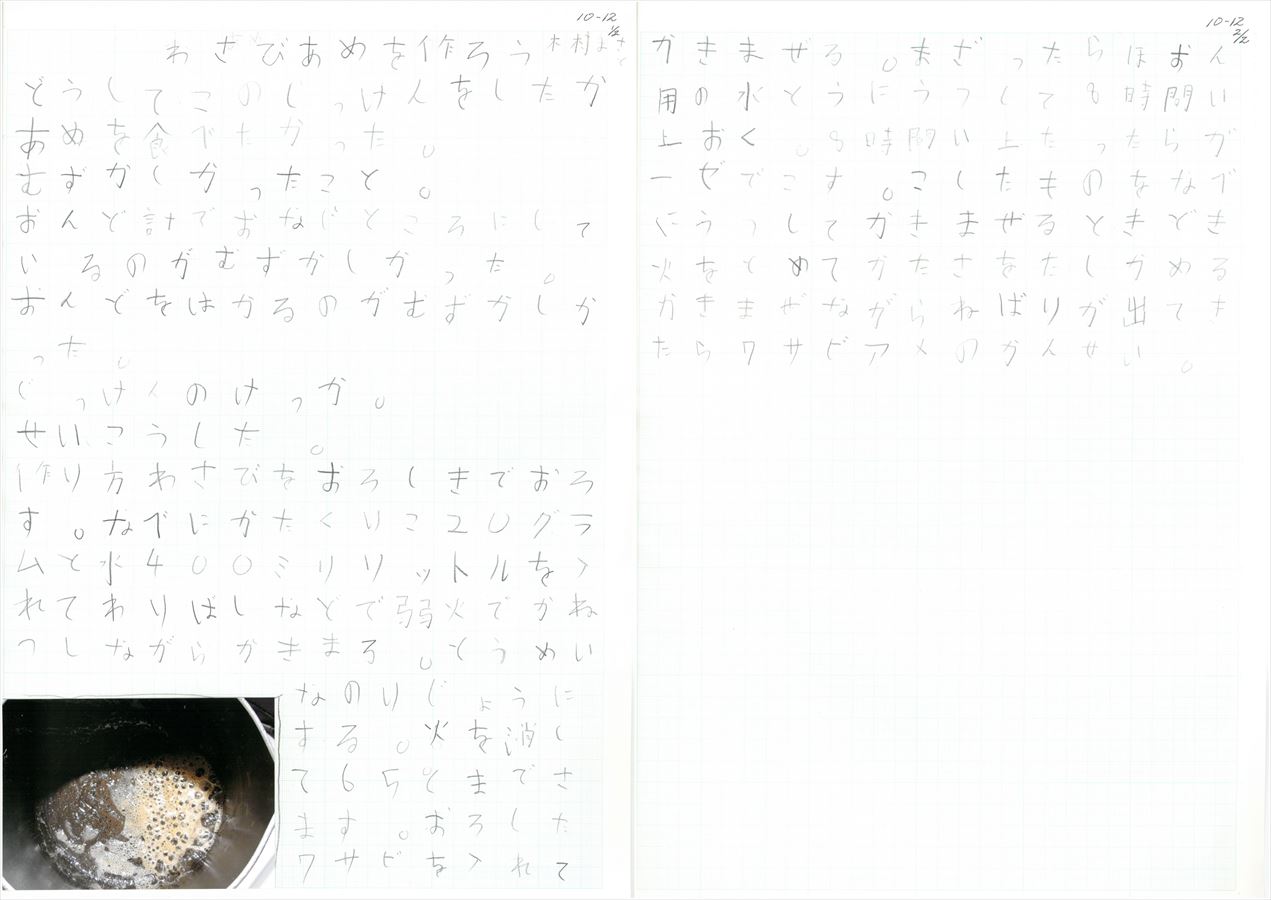 10-12
1/2
わさびあめを作ろう 木村よさと
どうしてこのじっけんをしたか
あめを食べたかった。
むずかしかったこと。
おんど計でおなじところにして
いるのがむずかしかった。
おんどをはかるのがむずかしか
った。
じっけんのけっか。
せいこうした。
作り方わさびをおろしきでおろ
す。なべにかたくりこ20グラ
ムと水400ミリリットルを入
れてわりばしなどで弱火でかね
つしながらかきまろ。とうめい
なのりじょうに
する。火を消し
て65℃までさ
ます。おろした
ワサビを入れて
10-12
2/2
かきまぜる。まざったらほおん
用の水とうにうつして8時間い
上おく。8時間い上たったらガ
ーゼでこす。こしたものをなべ
にうつしてかきまぜるときどき
火をとめてかたさをたしかめる
かきまぜながらねばりが出てき
たらワサビアメのかんせい。